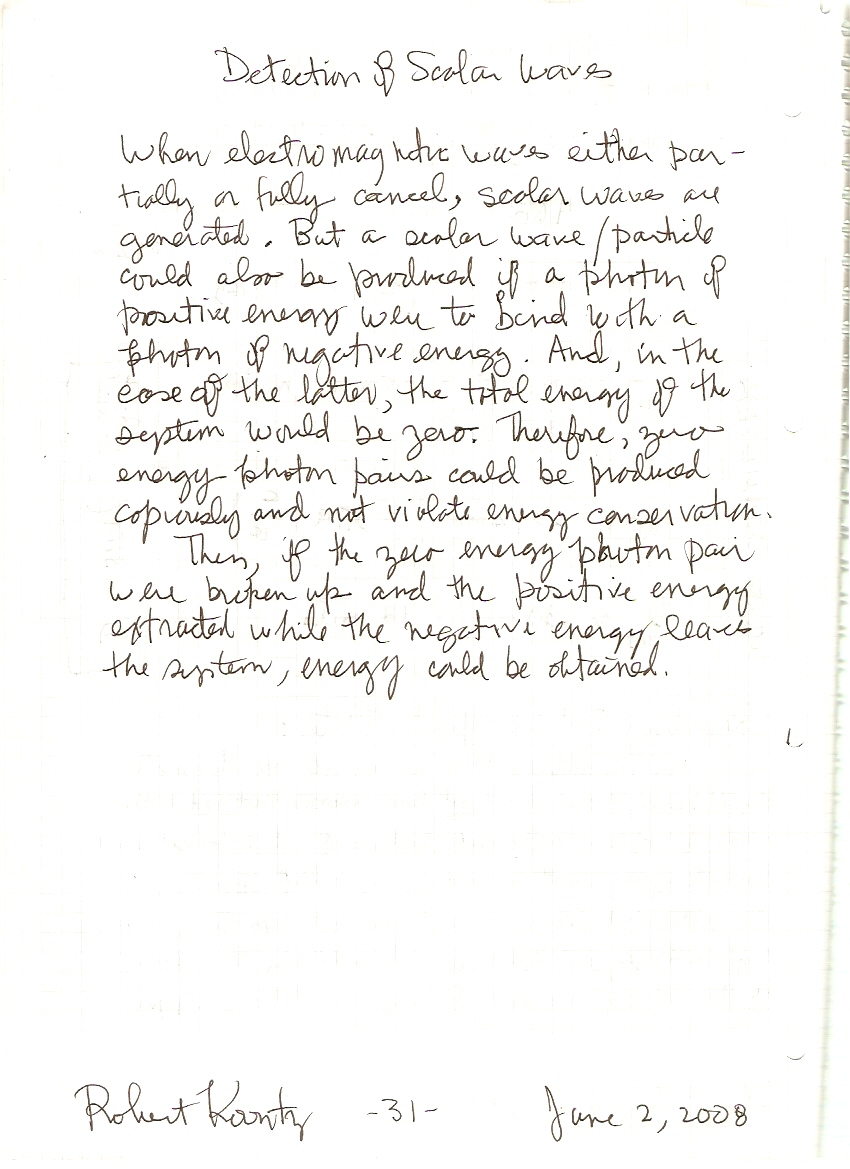 Detection of Scalar Waves
When electromagnetic waves either par-
tially or fully cancel, scalar waves are
generated. But a scalar wave/particle
could also be produced if a photon of
positive energy were to bind with a
photon of negative energy. And, in the
case of the latter, the total energy of the
system would be zero. Therefore, zero
energy photon pairs could be produced
copiously and not violate energy conservation.
Then, if the zero energy photon pair
were broken up and the positive energy
extracted while the negative energy leaves
the system, energy could be obtained.
Robert Koontz -31- June 2, 2008